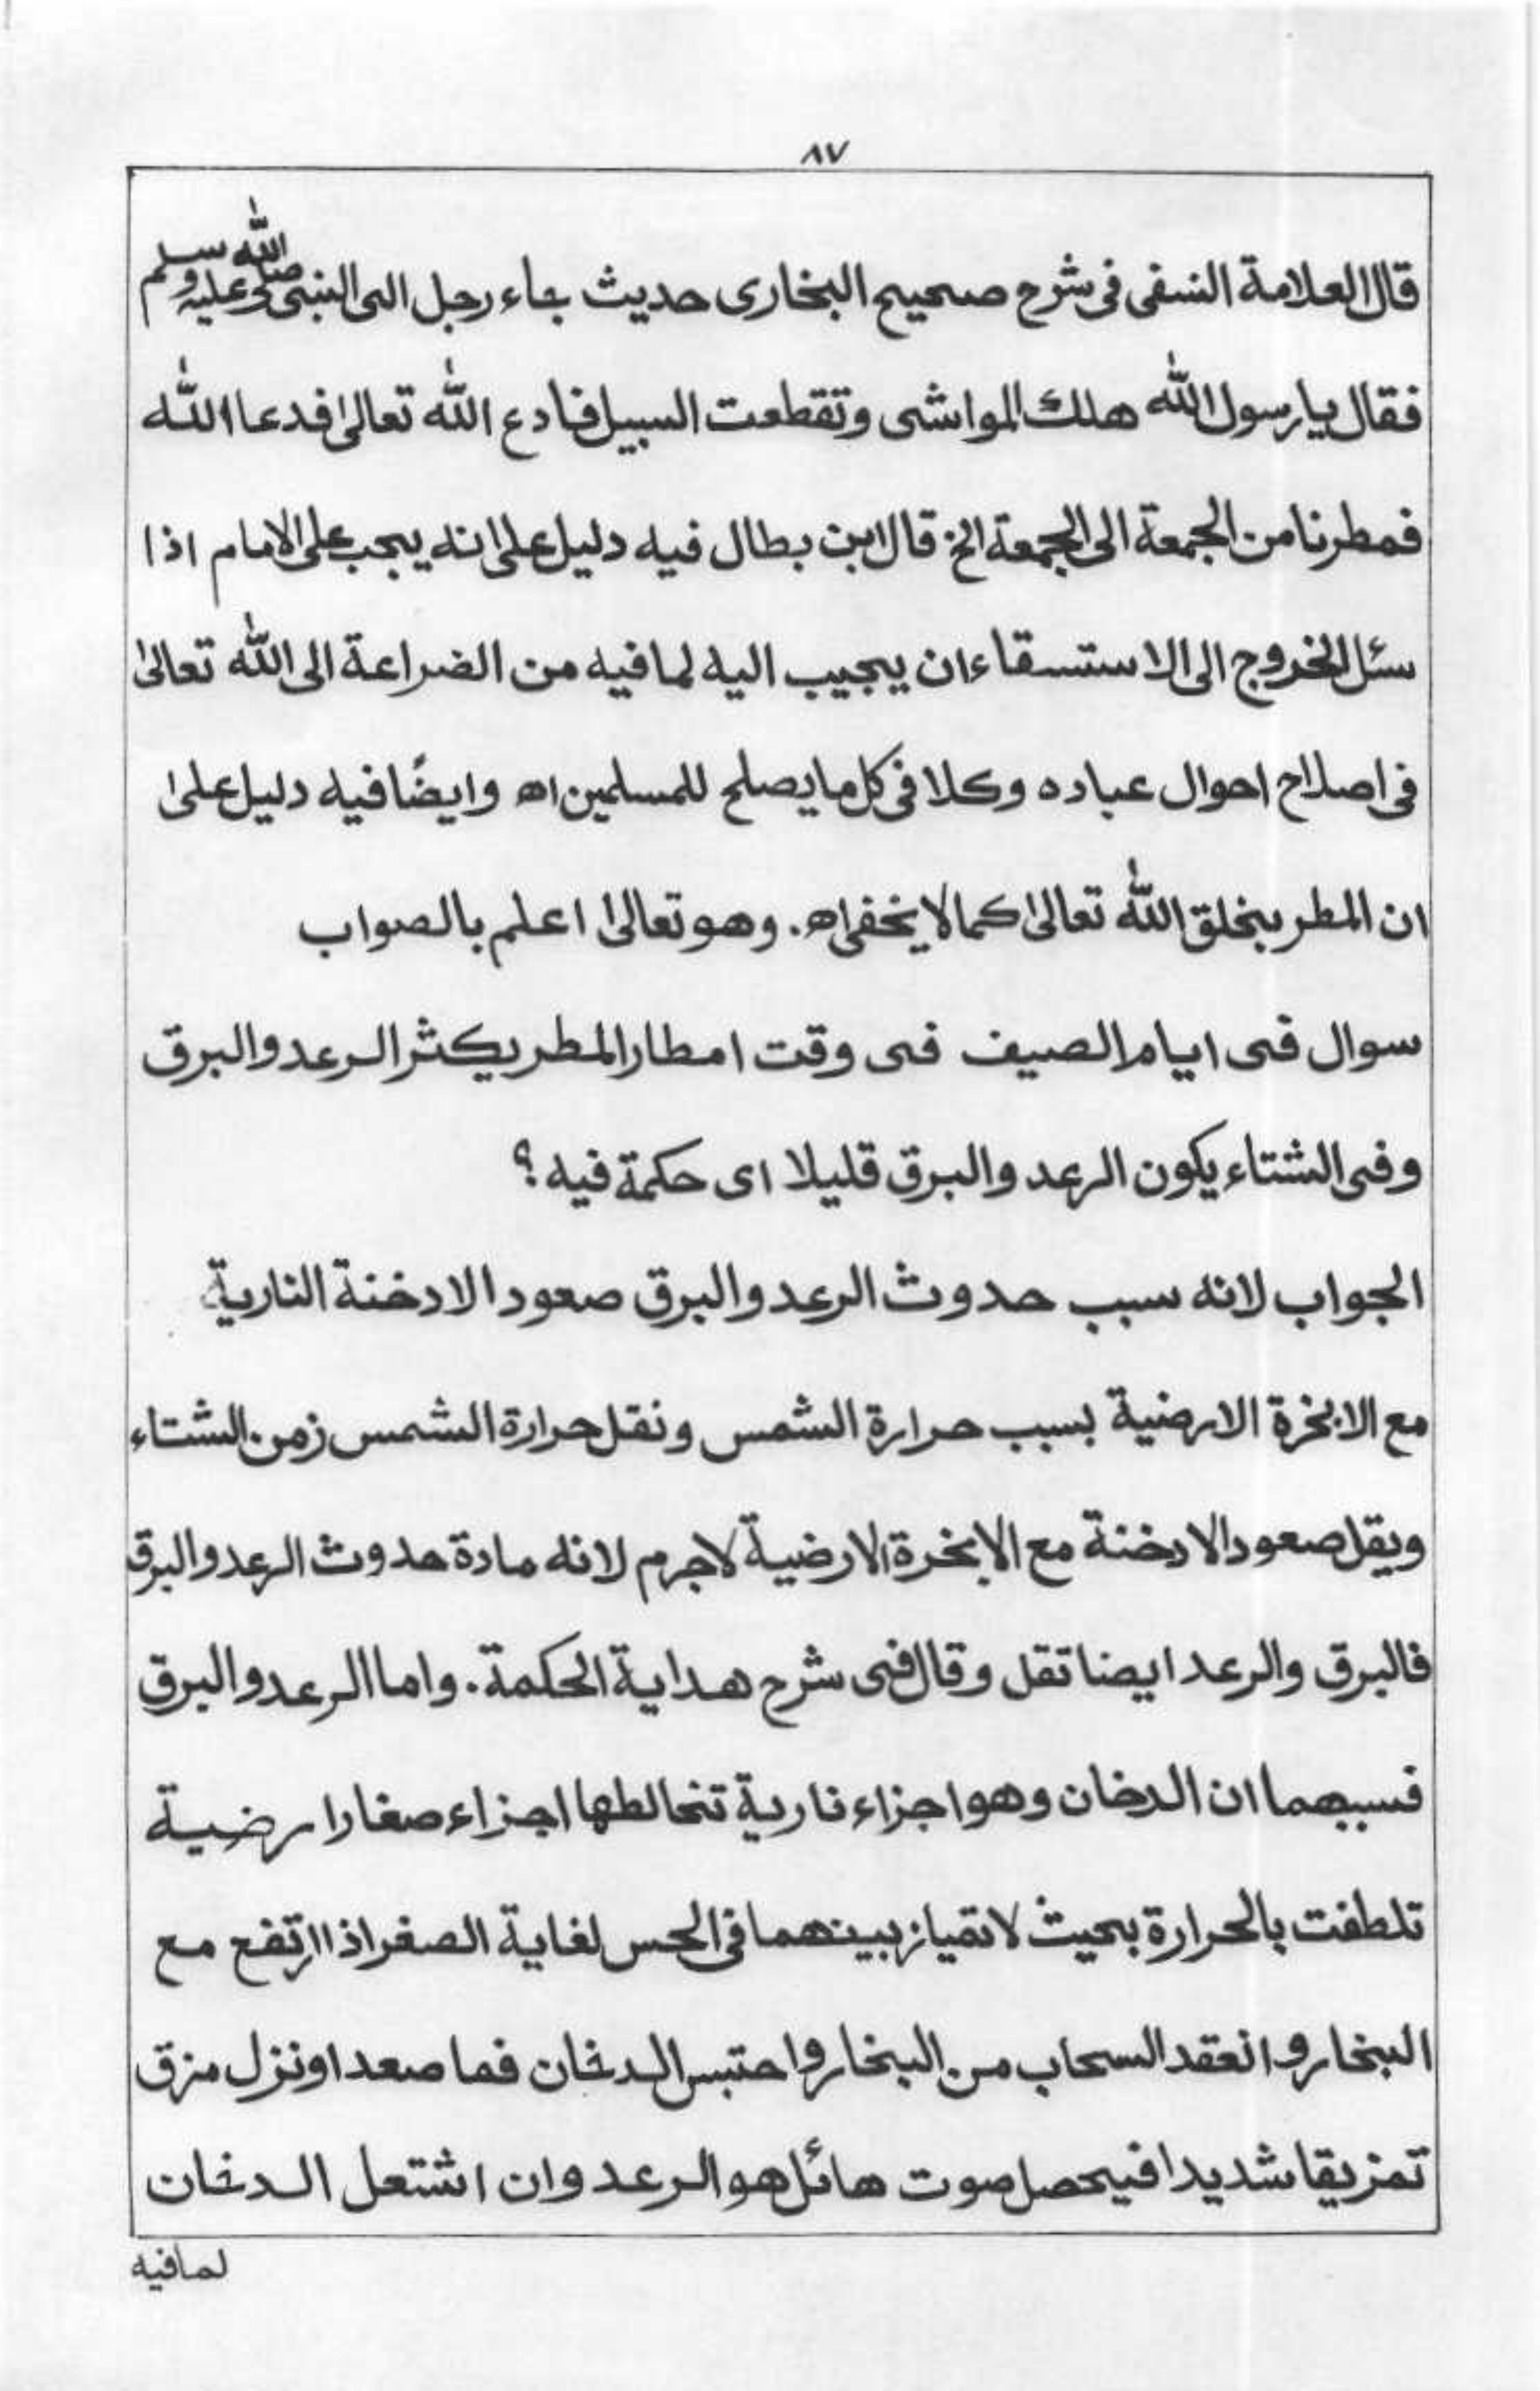 ٨٧
قال العلامة النسفى فى شرح صحيح البخارى حديث جاء رجل الى النبى صلى الله عليه وسلم
فقال يا رسول الله هلك المواشى وتقطعت السبيل فادع الله تعالىٰ فدعا الله
فمطرنا من الجمعة الى الجمعة الخ قال ابن بطال فيه دليل على انه يجب على الامام اذا
سئل الخروج الى الاستسقاء ان يجيب اليه لما فيه من الضراعة الى الله تعالىٰ
فى اصلاح احوال عباده وكلا فى كل ما يصلح للمسلمين اه وايضًا فيه دليل علىٰ
ان المطر بخلق الله تعالىٰ كما لا يخفى اه. وهو تعالىٰ اعلم بالصواب
سوال فى ايام الصيف فى وقت امطار المطر يكثر الرعد والبرق
وفى الشتاء يكون الرعد والبرق قليلا اى حكمة فيه ؟
الجواب لانه سبب حدوث الرعد والبرق صعود الادخنة النارية
مع الابخرة الارضية بسبب حرارة الشمس ونقل حرارة الشمس زمن الشتاء
ويقل صعود الادخنة مع الابخرة الارضية لاجرم لانه مادة حدوث الرعد والبرق
فالبرق والرعد ايضا تقل وقال فى شرح هداية الحكمة. واما الرعد والبرق
فسببهما ان الدخان وهو اجزاء نارية تخالطها اجزاء صغار ارضية
تلطفت بالحرارة بحيث لا تمياز بينهما فى الحس لغاية الصغر اذا ارتفع مع
البخار وانعقد السحاب من البخار واحتبس الدخان فما صعد او نزل مزق
تمزيقا شديدا فيحصل صوت هائل هو الرعد وان اشتعل الدخان
لما فيه